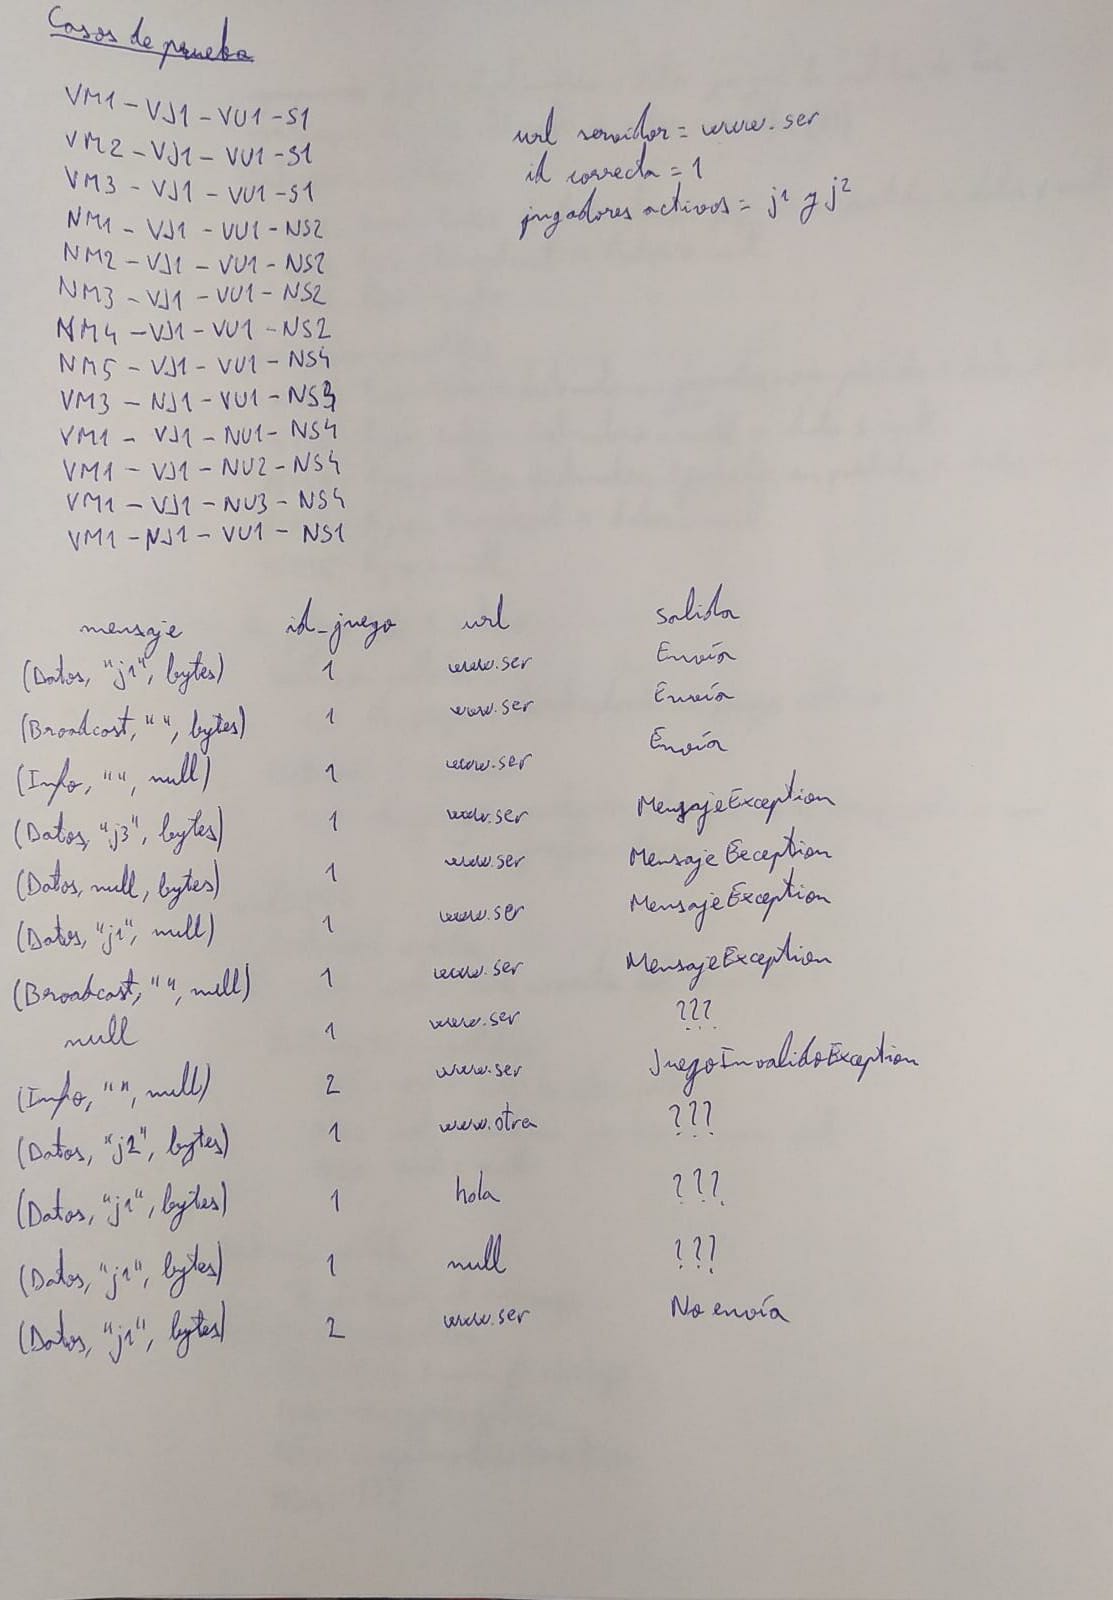 Casos de prueba
VM1 - VJ1 - VU1 - S1
VM2 - VJ1 - VU1 - S1
VM3 - VJ1 - VU1 - S1
NM1 - VJ1 - VU1 - NS2
NM2 - VJ1 - VU1 - NS2
NM3 - VJ1 - VU1 - NS2
NM4 - VJ1 - VU1 - NS2
NM5 - VJ1 - VU1 - NS4
VM3 - NJ1 - VU1 - NS3
VM1 - VJ1 - NU1 - NS4
VM1 - VJ1 - NU2 - NS4
VM1 - VJ1 - NU3 - NS4
VM1 - NJ1 - VU1 - NS1
url servidor = www.ser
id correcta = 1
jugadores activos = j1 y j2
mensaje id_juego url salida
(Datos, "j1", bytes) 1 www.ser Envía
(Broadcast, "", bytes) 1 www.ser Envía
(Info, "", null) 1 www.ser Envía
(Datos, "j3", bytes) 1 www.ser MensajeException
(Datos, null, bytes) 1 www.ser MensajeException
(Datos, "j1", null) 1 www.ser MensajeException
(Broadcast, "", null) 1 www.ser MensajeException
null 1 www.ser ???
(Info, "", null) 2 www.ser JuegoInvalidoException
(Datos, "j2", bytes) 1 www.otra ???
(Datos, "j1", bytes) 1 hola ???
(Datos, "j1", bytes) 1 null ???
(Datos, "j1", bytes) 2 www.ser No envía